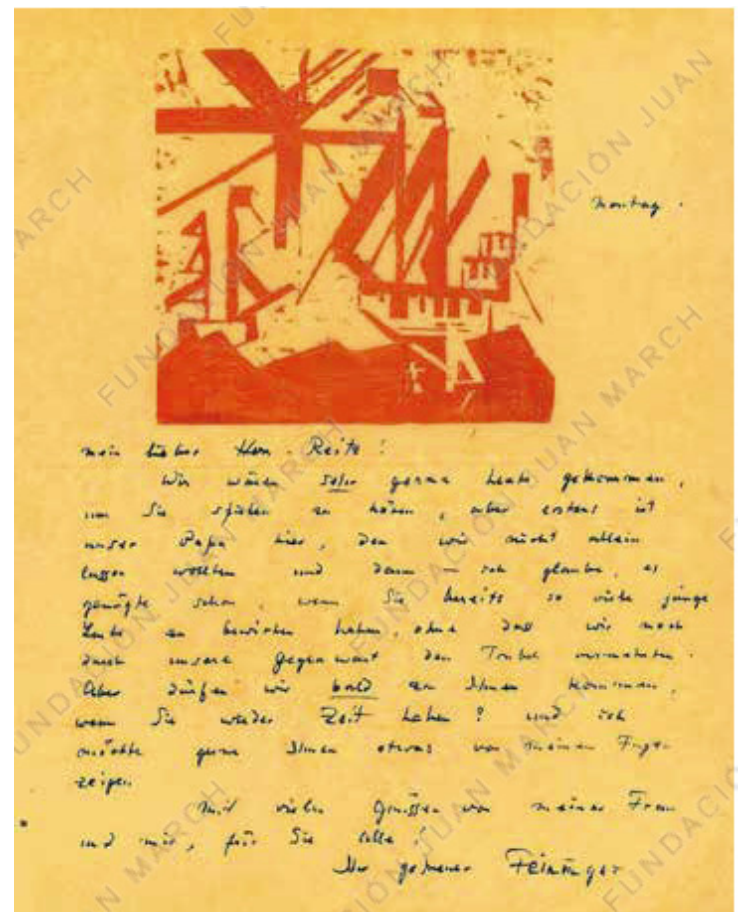 Montag.
mein lieber Herr Reitz!
Wir wären sehr gerne heute gekommen,
um Sie spielen zu hören, aber erstens ist
unser Papa hier, den wir nicht allein
lassen wollten und dann — ich glaube, es
genügte schon, wenn Sie bereits so viele junge
Leute zu bewirten haben, ohne dass wir noch
durch unsere Gegenwart den Trubel vermehrten.
Aber dürfen wir bald zu Ihnen kommen,
wenn Sie wieder Zeit haben? und ich
möchte gerne Ihnen etwas von meinen Fugen
zeigen.
Mit vielen Grüssen von meiner Frau
und mir, für Sie alle!
Ihr Feininger
FUNDACIÓN JUAN MARCH